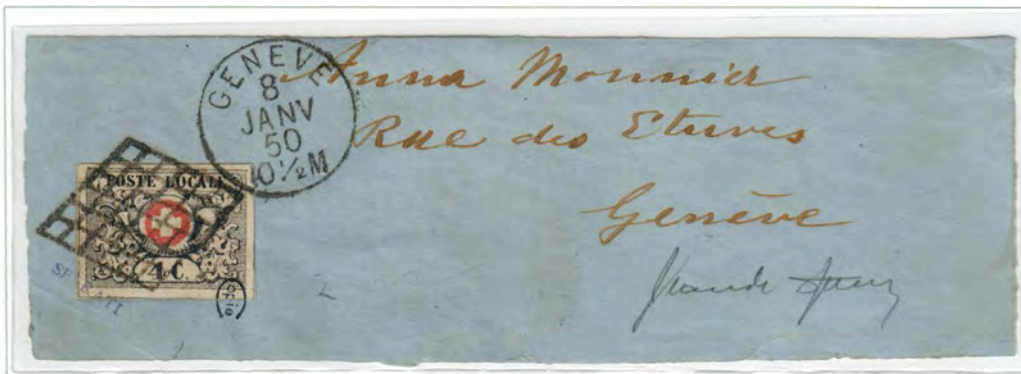 GENEVE
8
JANV
50
10½M
Anna Monnier
Rue des Etuves
Genève
POSTE LOCALE
4 C.
Copie